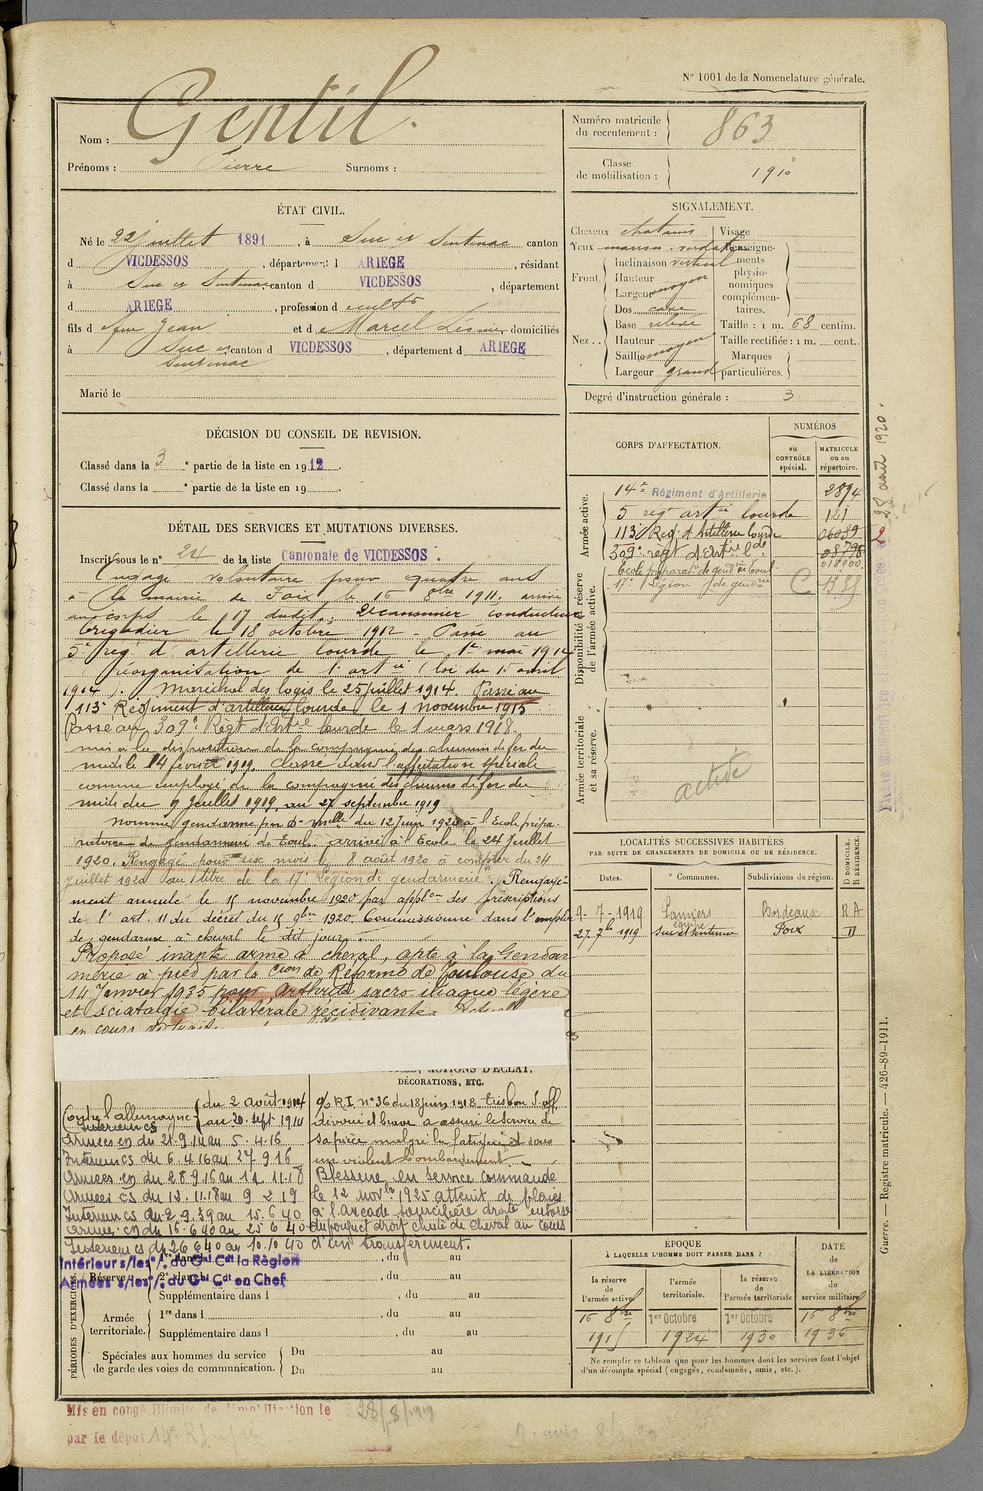 N° 1001 de la Nomenclature générale.
Nom : Gentil.
Prénoms : Pierre Surnoms :
Numéro matricule du recrutement : 863
Classe de mobilisation : 1910
ÉTAT CIVIL.
Né le 22 juillet 1891, à Suc et Sentenac canton
d VICDESSOS, département d ARIEGE, résidant
à Suc et Sentenac canton d VICDESSOS, département
d ARIEGE, profession de cultr
fils d feu Jean et de Marcel domiciliés
à Suc et Sentenac canton d VICDESSOS, département d ARIEGE
Marié le
SIGNALEMENT.
Cheveux chatains
Yeux marron verdatre
Front
Inclinaison vertical
Hauteur
Largeur moyen
Nez
Dos cave
Base relevé
Hauteur
Saillie moyen
Largeur grand
Visage
Renseignements physionomiques complémentaires.
Taille : 1 m. 68 centim.
Taille rectifiée : 1 m. cent.
Marques particulières.
Degré d'instruction générale : 3
DÉCISION DU CONSEIL DE REVISION.
Classé dans la 3e partie de la liste en 1912.
Classé dans la e partie de la liste en 19
DÉTAIL DES SERVICES ET MUTATIONS DIVERSES.
Inscrit sous le n° 24 de la liste Cantonale de VICDESSOS.
Engagé volontaire pour quatre ans
à la mairie de Foix le 16 8bre 1911. arrivé
au corps le 17 dudit. 2e canonnier conducteur
brigadier le 18 octobre 1912 - Passé au
5e reg. d'artillerie lourde le 1er mai 1914
réorganisation de l'artie (loi du 15 avril
1914). Maréchal des logis le 25 juillet 1914. Passé au
113e Régiment d'artillerie lourde le 1 novembre 1915
Passé au 309e Régt d'Artrie lourde le 1 mars 1918.
mis à la disposition de la compagnie des chemins de fer du
midi le 14 février 1919. Classé dans l'affectation spéciale
comme employé de la compagnie des chemins de fer du
midi du 9 Juillet 1919, au 27 septembre 1919
Nommé gendarme par d. mlle du 12 Juin 1920 à l'Ecole prépa-
ratoire de gendarmerie de Toul. arrivé à l'Ecole le 24 Juillet
1920. Rengagé pour six mois le 8 août 1920 à compter du 24
Juillet 1920 au titre de la 17e Légion de gendarmerie. Rengage-
ment annulé le 15 novembre 1920 par applon des prescriptions
de l'art. 11 du décret du 15 9bre 1920. Commissionné dans l'emploi
de gendarme à cheval le dit jour.
Proposé inapte arme à cheval, apte à la Gendar
merie à pied par la Cion de Réforme de Toulouse du
14 Janvier 1935 pour arthrite sacro iliaque légère
et sciatalgie bilatérale récidivante.
en cours
CORPS D'AFFECTATION.
NUMÉROS
au CONTRÔLE spécial.
MATRICULE ou au répertoire.
Armée active.
14e Régiment d'Artillerie 2894
5 reg artie lourde 161
113e Reg. d'Artillerie lourde
309e regt d'Artrie lde
Ecole préparatre de gendrie Toul
17e Légion de gendrie C
Disponibilité et réserve de l'armée active.
Armée territoriale et sa réserve.
activé
28 août 1920.
LOCALITÉS SUCCESSIVES HABITÉES
PAR SUITE DE CHANGEMENTS DE DOMICILE OU DE RÉSIDENCE.
Dates. Communes. Subdivisions de région. D DOMICILE. R RÉSIDENCE.
9-7-1919 Pamiers Bordeaux RA
27 7bre 1919 Suc et Sentenac Foix
ACTIONS D'ÉCLAT, DÉCORATIONS, ETC.
Contre l'allemagne
Intérieur cs du 2 août 1914 au 20 sept 1914
Armées en du 21.9.14 au 5.4.16
Intérieur cs du 6.4.16 au 27.9.16
Armées en du 28.9.16 au 11.11.18
Armées cs du 12.11.18 au 9 2 19
Intérieur cs du 2.9.39 au 15.6.40
Armées cs du 16.6.40 au 25.6.40
Intérieur cs du 26 6 40 au 10.10 40
o/ R.I. n° 36 du 18 juin 1918. très bon S. off.
dévoué et brave a assuré le service de
sa pièce malgré la fatigue et sous
un violent bombardement.
Blessure en service commandé
le 12 novbre 1925 atteint de plaies
à l'arcade sourcilière droite, entorse
du poignet droit chute de cheval au cours
d'un transfèrement.
Intérieur s/les o/. du Gal Cdt la Région
Armées s/les o/. du Gal Cdt en Chef
PÉRIODES D'EXERCICES.
Réserve
1re dans l , du au
2e dans l , du au
Supplémentaire dans l , du au
Armée territoriale.
1re dans l , du au
Supplémentaire dans l , du au
Spéciales aux hommes du service de garde des voies de communication.
Du au
Du au
ÉPOQUE
À LAQUELLE L'HOMME DOIT PASSER DANS :
la réserve de l'armée active.
l'armée territoriale.
la réserve de l'armée territoriale
DATE de LA LIBÉRATION du service militaire
16 8bre 1915
1er Octobre 1924
1er Octobre 1930
16 8bre 1936
Ne remplir ce tableau que pour les hommes dont les services font l'objet
d'un décompte spécial (engagés, condamnés, omis, etc.).
Guerre. — Registre matricule. — 426-89-1911.
Mis en congé illimité de démobilisation le 28/8/1919
par le dépôt